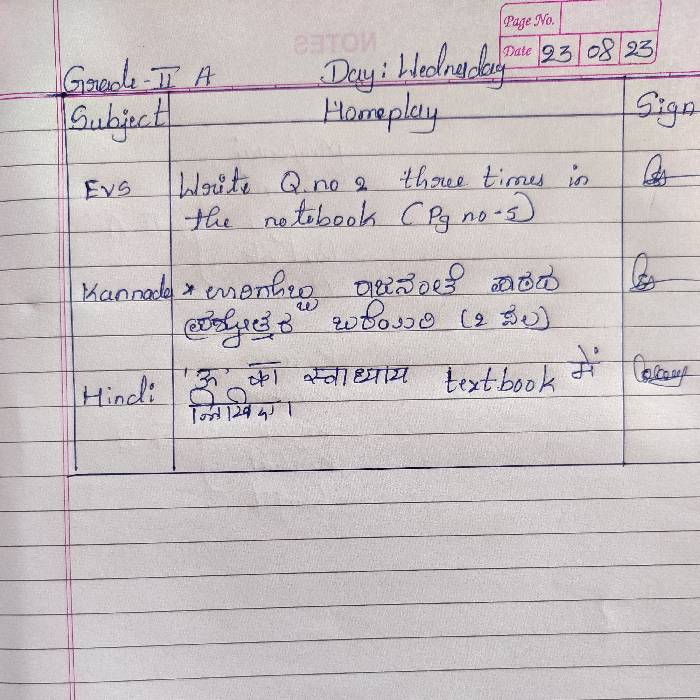 Page No.
Date 23 08 23
Grade-II A Day: Wednesday
Subject Homeplay Sign
EVS Write Q.no 2 three times in
the notebook (Pg no-5)
Kannada * ಪಾಠದ
ಬರೆಯಿರಿ (2 ಸಲ)
Hindi 'ऊ' का स्वाध्याय textbook में
लिखिए।